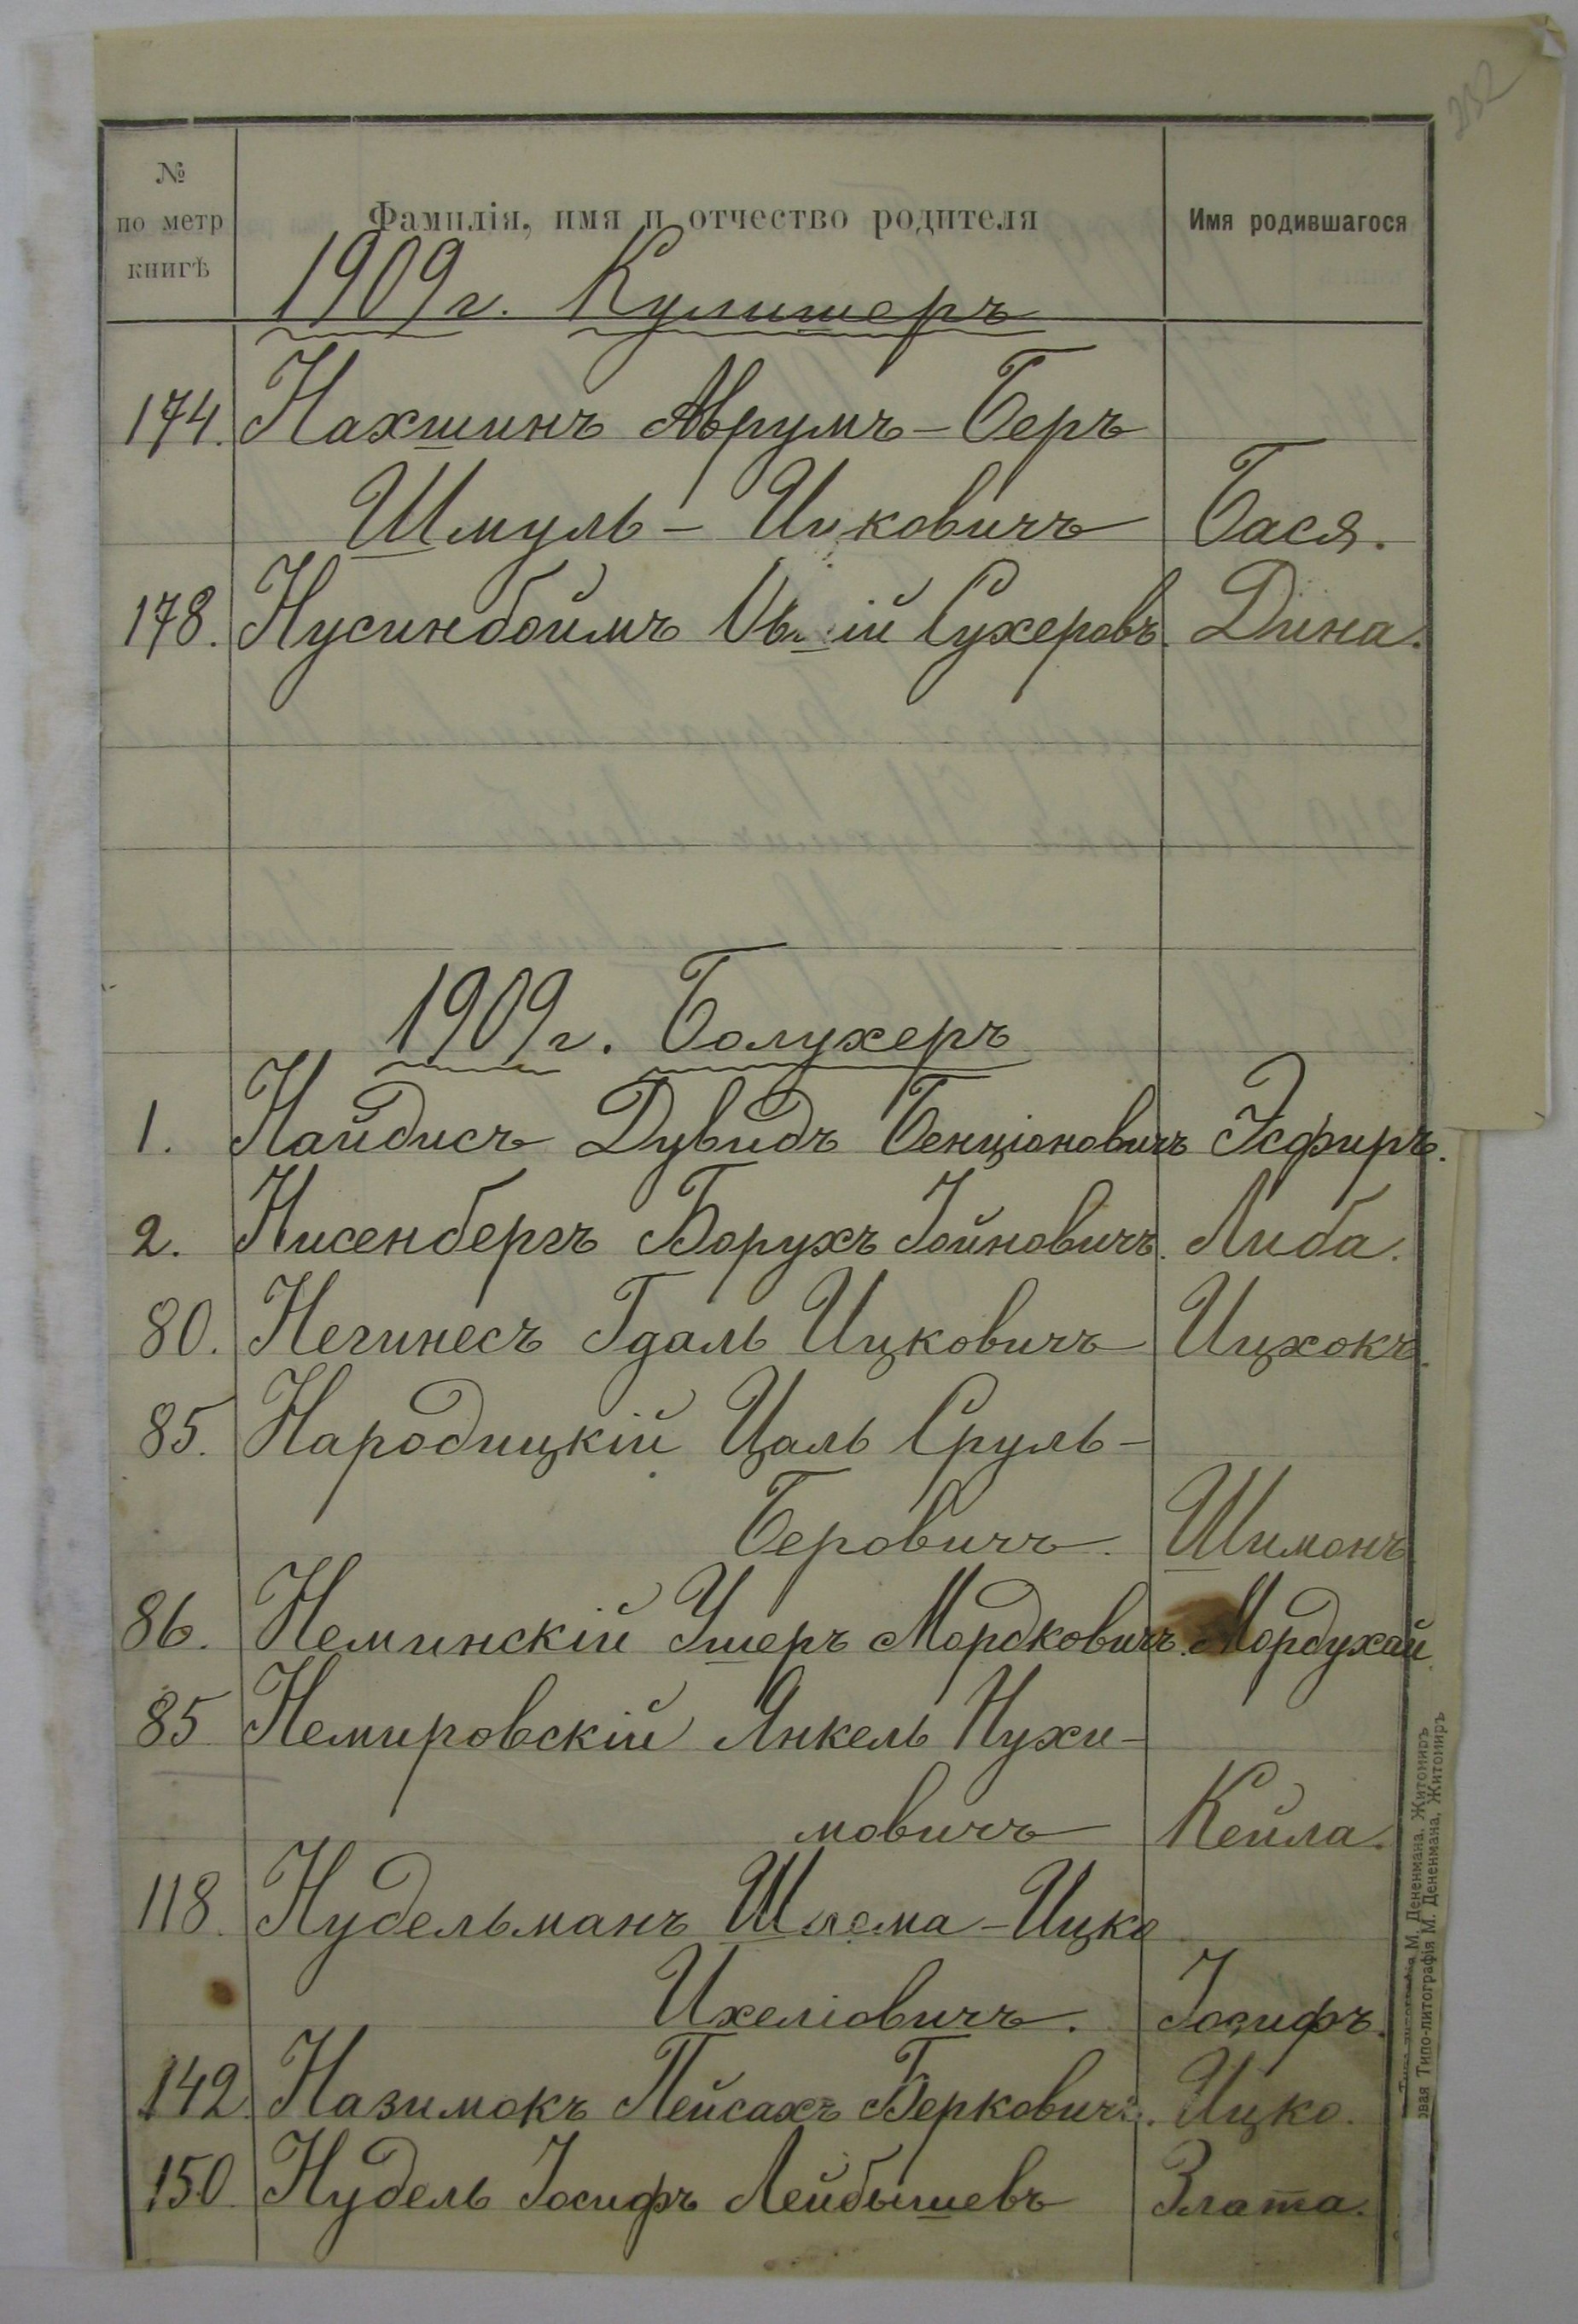 232
№ по метр книгѣ
Фамилія, имя и отчество родителя
Имя родившагося
1909 г. Кулишеръ
174. Нахшинъ Аврумъ-Беръ
Шмуль- Ицковичъ Бася.
178. Нусинбоймъ Сухеровъ. Дина.
1909 г. Болухеръ
1. Найдисъ Дувидъ Бенціоновичъ Эсфирь.
2. Нисенбергъ Борухъ Іойновичъ. Либа.
80. Негинесъ Гдаль Ицковичъ Ицхокъ.
85. Народицкій Цаль Сруль-
Беровичъ. Шимонъ
86. Неминскій Ушеръ Мордковичъ. Мордухай
85 Немировскій Янкель Нухи-
мовичъ Кейла.
118. Нудельманъ Шлема-Ицко
Ихеліовичъ. Іосифъ.
142. Назимокъ Пейсахъ Берковичъ. Ицко.
150. Нудель Іосифъ Лейбышевъ Злата.
М. Дененмана, Житомиръ
Типо-литографія М. Дененмана, Житомиръ